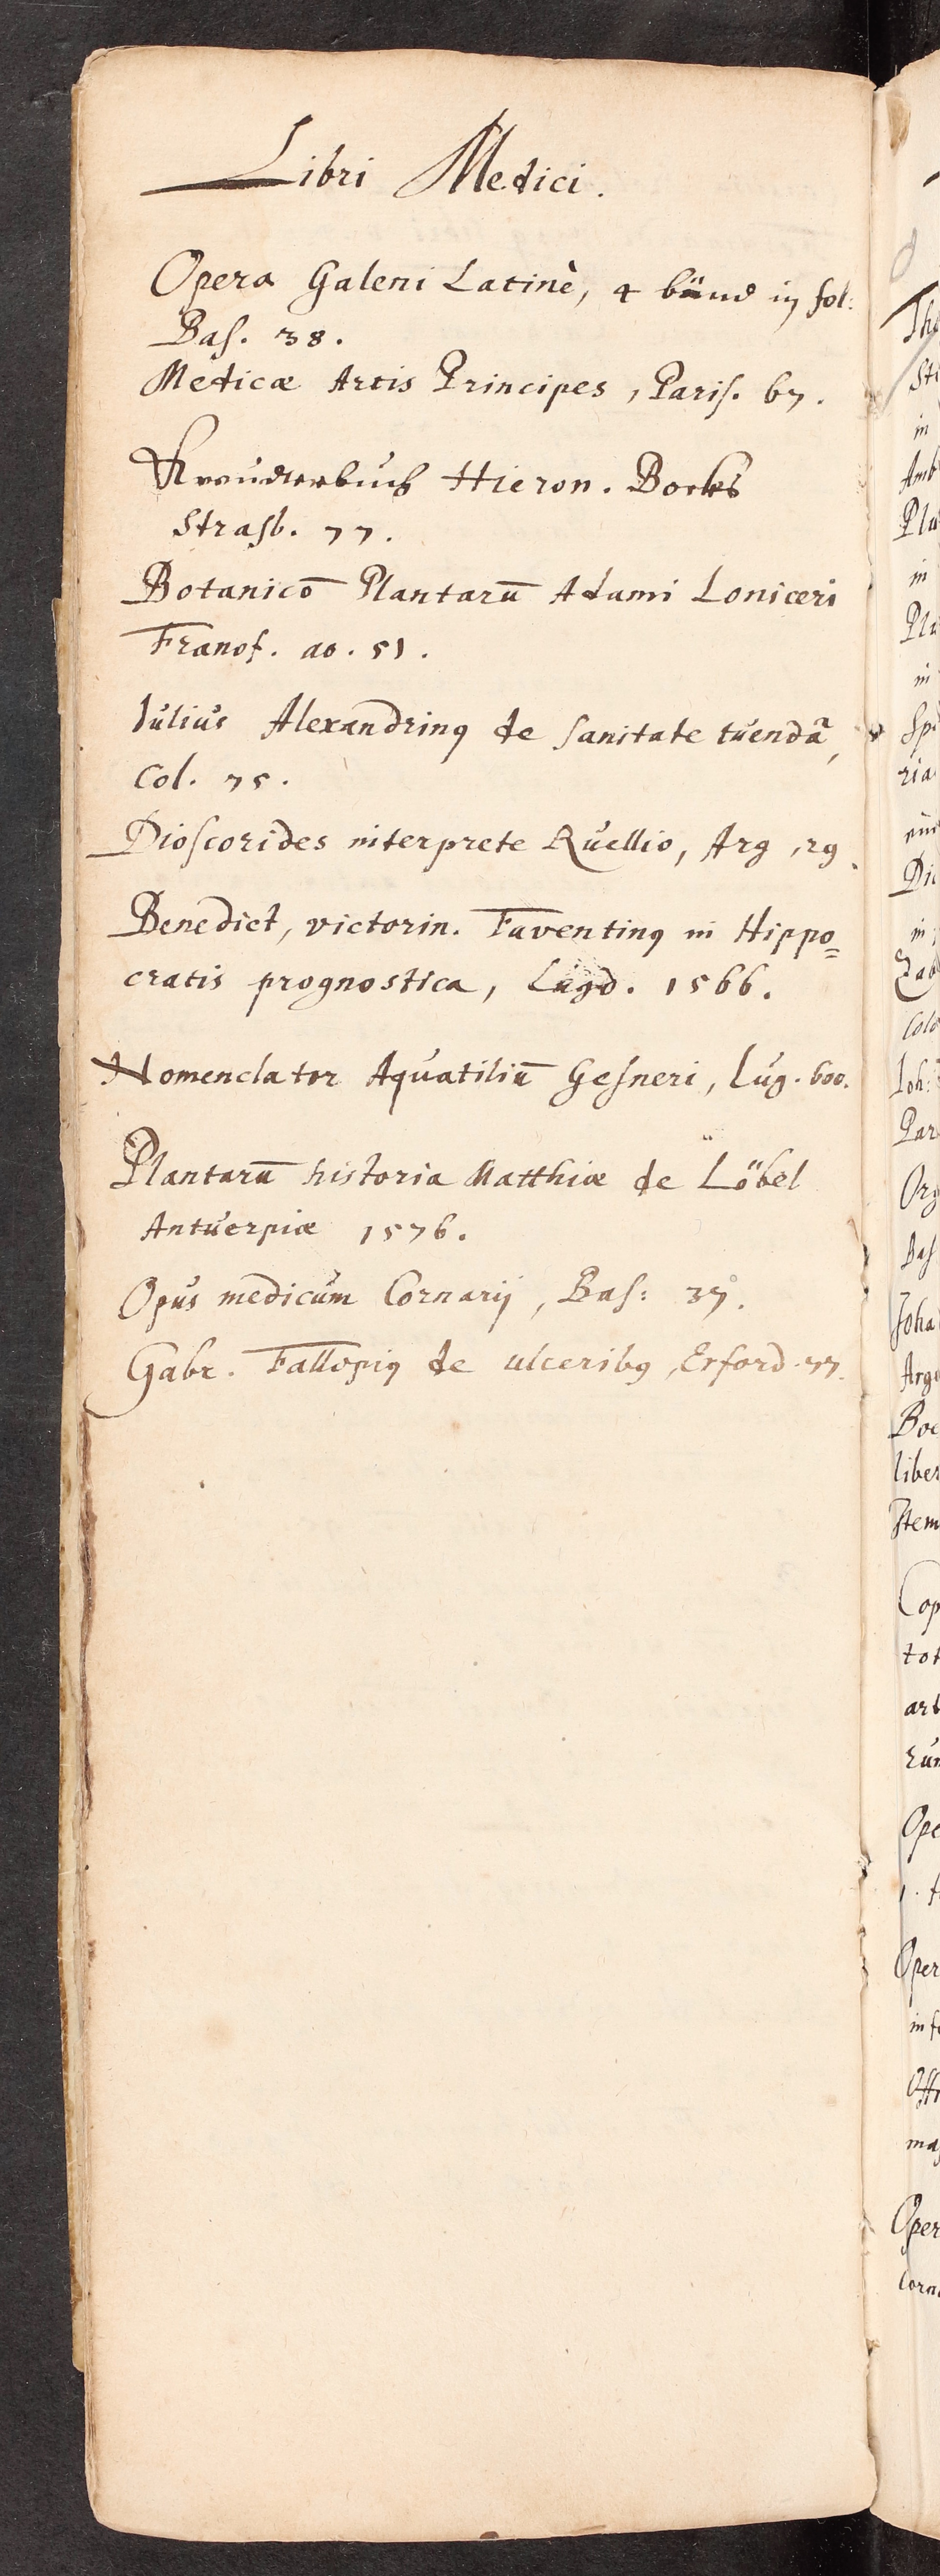 Libri Medici.
Opera Galeni Latinè, 4 bünd in fol:
Bas. 38.
Medicæ Artis Principes, Paris. 67.
Kreudterbuch Hieron. Bocks
Strasb. 77.
Botanicō Plantarū Adami Loniceri
Francf. ao. 51.
Iulius Alexandrinq de sanitate tuendâ,
Col. 75.
Dioscorides interprete Ruellio, Arg, 29.
Benedict, victorin. Faventinq in Hippo=
cratis prognostica, Lugd. 1566.
Nomenclator Aquatiliū Gesneri, Lug. 600.
Plantarū historia Matthiæ de Löbel
Antuerpiæ 1576.
Opus medicum Cornarij, Bas: 37.
Gabr. Fallopiq de ulceribq, Erford. 77.
in
Plu
in
Pla
in
Spe
ria
in
Colo
Ioh:
Par
Org
Bas
Joha
Arge
Boe
liber
Item
Cop
tot
art
Ope
Oper
in fo
Oper
Corn